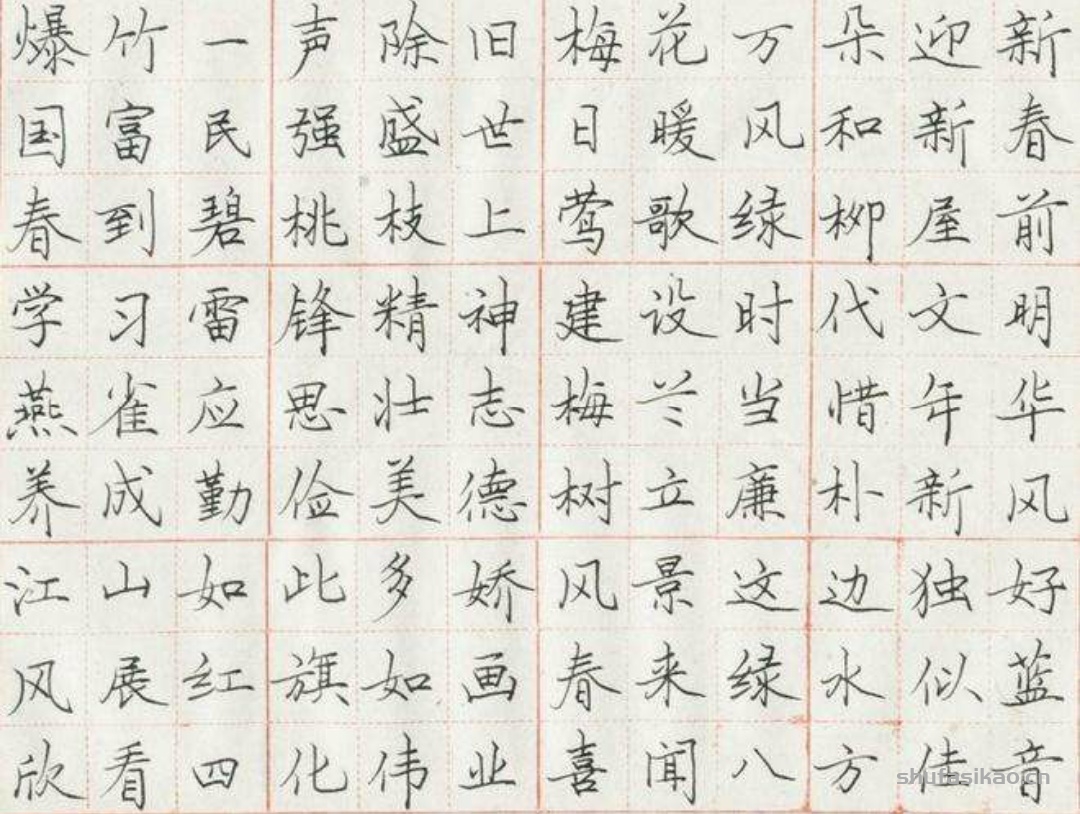 爆竹一声除旧梅花万朵迎新
国富民强盛世日暖风和新春
春到碧桃枝上莺歌绿柳屋前
学习雷锋精神建设时代文明
燕雀应思壮志梅兰当惜年华
养成勤俭美德树立廉朴新风
江山如此多娇风景这边独好
风展红旗如画春来绿水似蓝
欣看四化伟业喜闻八方佳音
shufasikao.cn